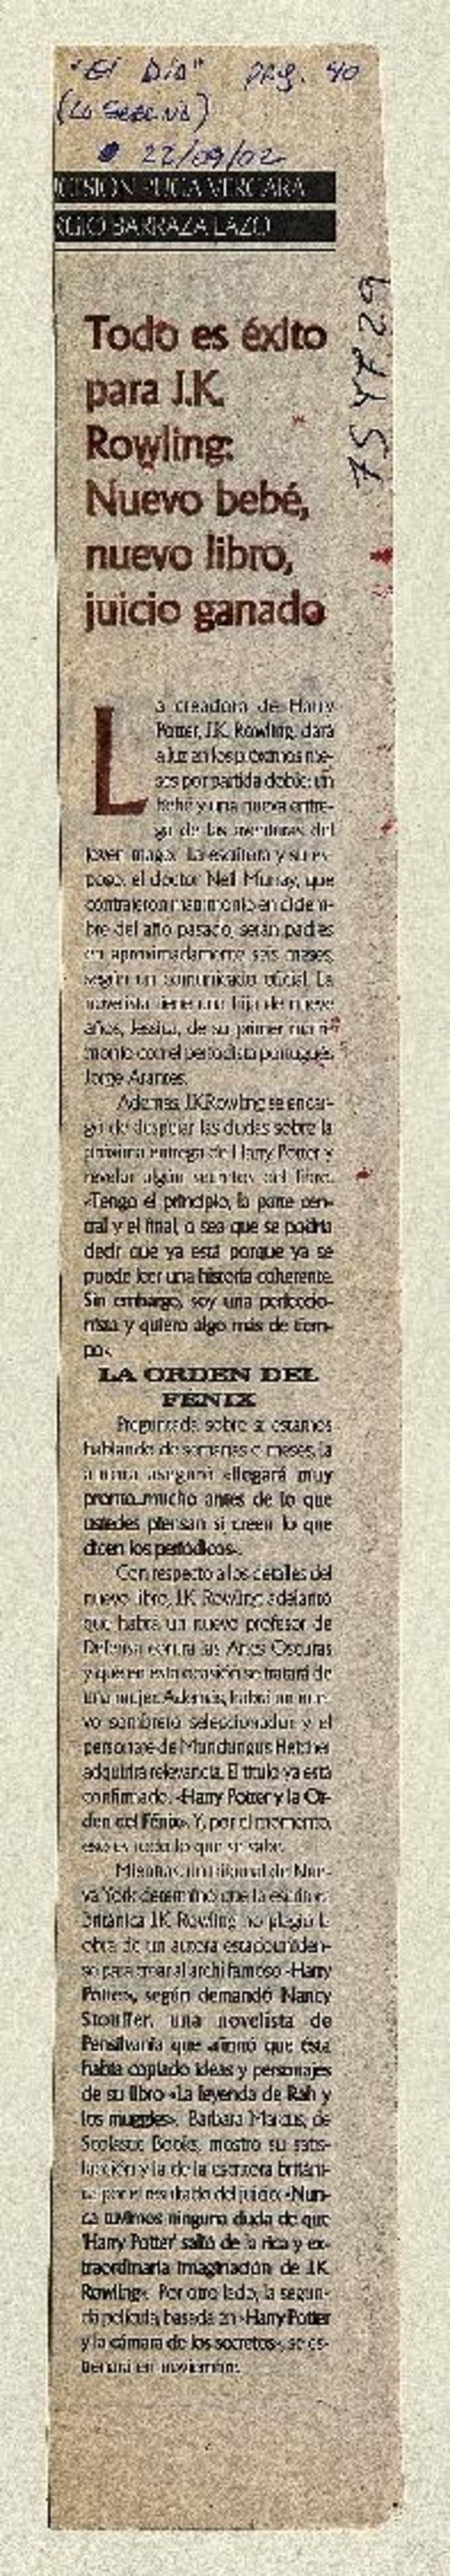 "El Día" pag. 40
(La Serena)
22/09/02
PUGA VERGARA
RGIO BARRAZA LAZO
Todo es éxito
para J.K.
Rowling:
Nuevo bebé,
nuevo libro,
juicio ganado
La creadora de Harry
Potter, J.K. Rowling, dará
a luz en los próximos me-
ses por partida doble: un
bebé y una nueva entre-
ga de las aventuras del
joven mago. La escritora y su es-
poso, el doctor Neil Murray, que
contrajeron matrimonio en diciem-
bre del año pasado, serán padres
en aproximadamente seis meses,
según un comunicado oficial. La
novelista tiene una hija de nueve
años, Jessica, de su primer matri-
monio con el periodista portugués
Jorge Arantes.
Además, J.K Rowling se encar-
gó de despejar las dudas sobre la
próxima entrega de Harry Potter y
revelar algún secretos del libro.
«Tengo el principio, la parte cen-
tral y el final, o sea que se podría
decir que ya está porque ya se
puede leer una historia coherente.
Sin embargo, soy una perfeccio-
nista y quiero algo más de tiem-
po».
LA ORDEN DEL
FENIX
Preguntada sobre si estamos
hablando de semanas o meses, la
autora aseguró «llegará muy
pronto...mucho antes de lo que
ustedes piensan si creen lo que
dicen los periódicos».
Con respecto a los detalles del
nuevo libro, J.K. Rowling adelantó
que habrá un nuevo profesor de
Defensa contra las Artes Oscuras
y que en esta ocasión se tratará de
una mujer. Además, habrá un nue-
vo sombrero seleccionador y el
personaje de Mundungus Fletcher
adquirirá relevancia. El título ya está
confirmado, «Harry Potter y la Or-
den del Fénix». Y, por el momento,
eso es todo lo que se sabe.
Mientras, un tribunal de Nue-
va York determinó que la escritora
británica J.K. Rowling no plagió la
obra de un autora estadouniden-
se para crear al archifamoso «Harry
Potter», según demandó Nancy
Stouffer, una novelista de
Pensilvania que afirmó que ésta
había copiado ideas y personajes
de su libro «La leyenda de Rah y
los muggles». Barbara Marcus, de
Scolastic Books, mostró su satis-
facción y la de la escritora británi-
ca por el resultado del juicio: «Nun-
ca tuvimos ninguna duda de que
'Harry Potter' salió de la rica y ex-
traordinaria imaginación de J.K.
Rowling». Por otro lado, la segun-
da película, basada en «Harry Potter
y la cámara de los secretos», se es-
trenará en noviembre.